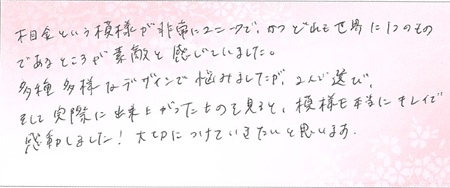 木目金という模様が非常にユニークで、かつどれも世界に1つのもの
であるところが素敵と感じていました。
多種多様なデザインで悩みましたが、2人で選び、
そして実際に出来上がったものを見ると、模様も本当にキレイで
感動しました！大切につけていきたいと思います。